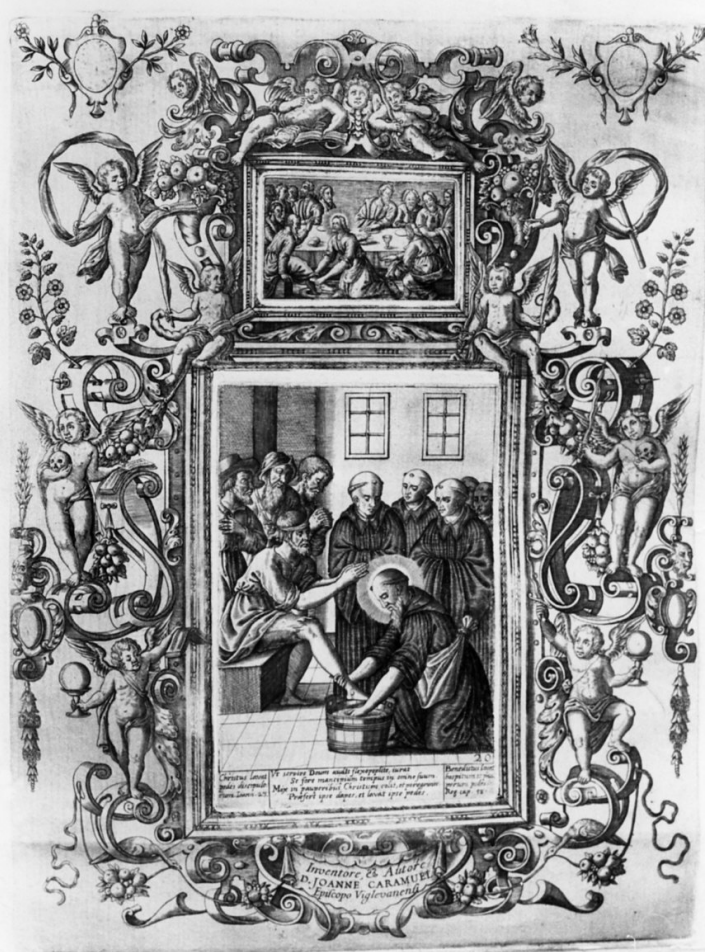 20
Christus lavat
pedes discipulo
rum Joann. 13.
Ut servire Deum vidit
Se fore mancipium tempus in omne suum.
Mox in pauperibus Christum videt, et peregrinis
Praefert ipse dapes, et lavat ipse pedes.
Benedictus lavat
hospitum et pau
perum pedes.
Reg cap. 53.
Inventore, & Autore
D. JOANNE CARAMUEL
Episcopo Viglevanensi